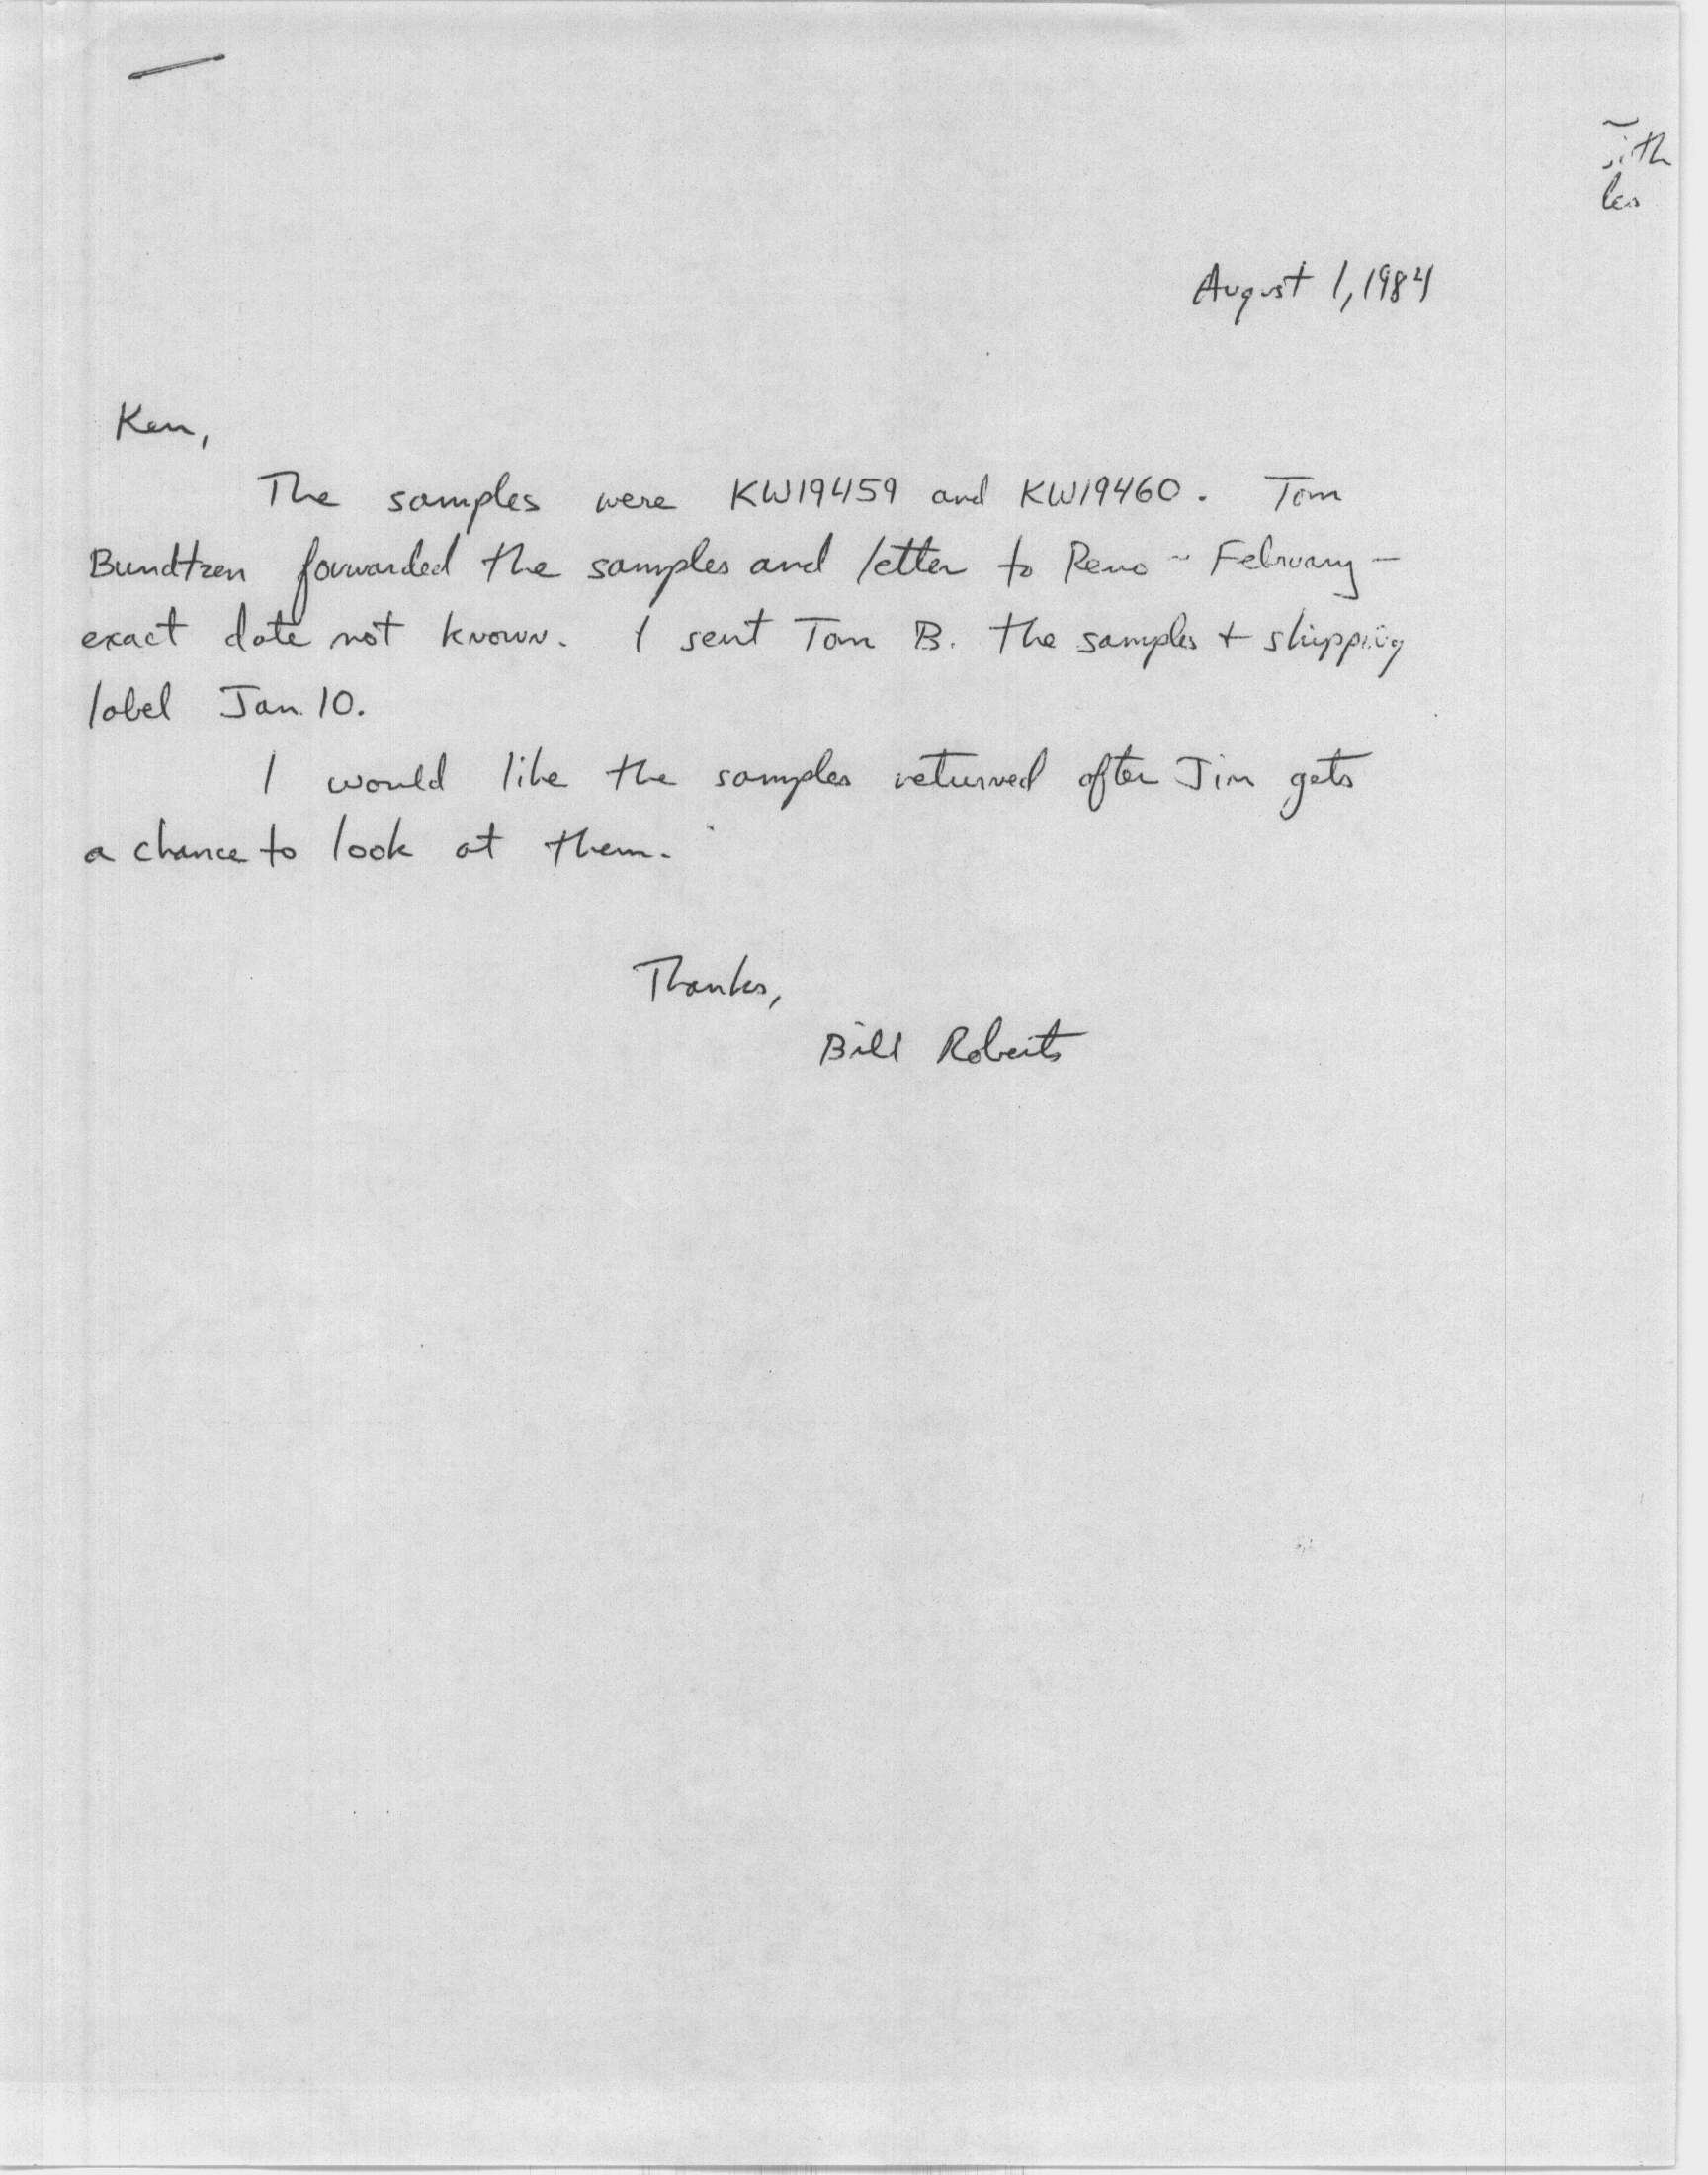 August 1, 1984
Ken,
The samples were KW19459 and KW19460. Tom
Bundtzen forwarded the samples and letter to Reno ~ February -
exact date not known. I sent Tom B. the samples + shipping
label Jan. 10.
I would like the samples returned after Jim gets
a chance to look at them.
Thanks,
Bill Roberts